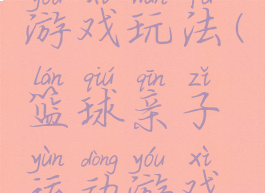 游戏玩法(
lán qiú qīn zǐ
篮球亲子
yùn dòng yóu xì
运动游戏